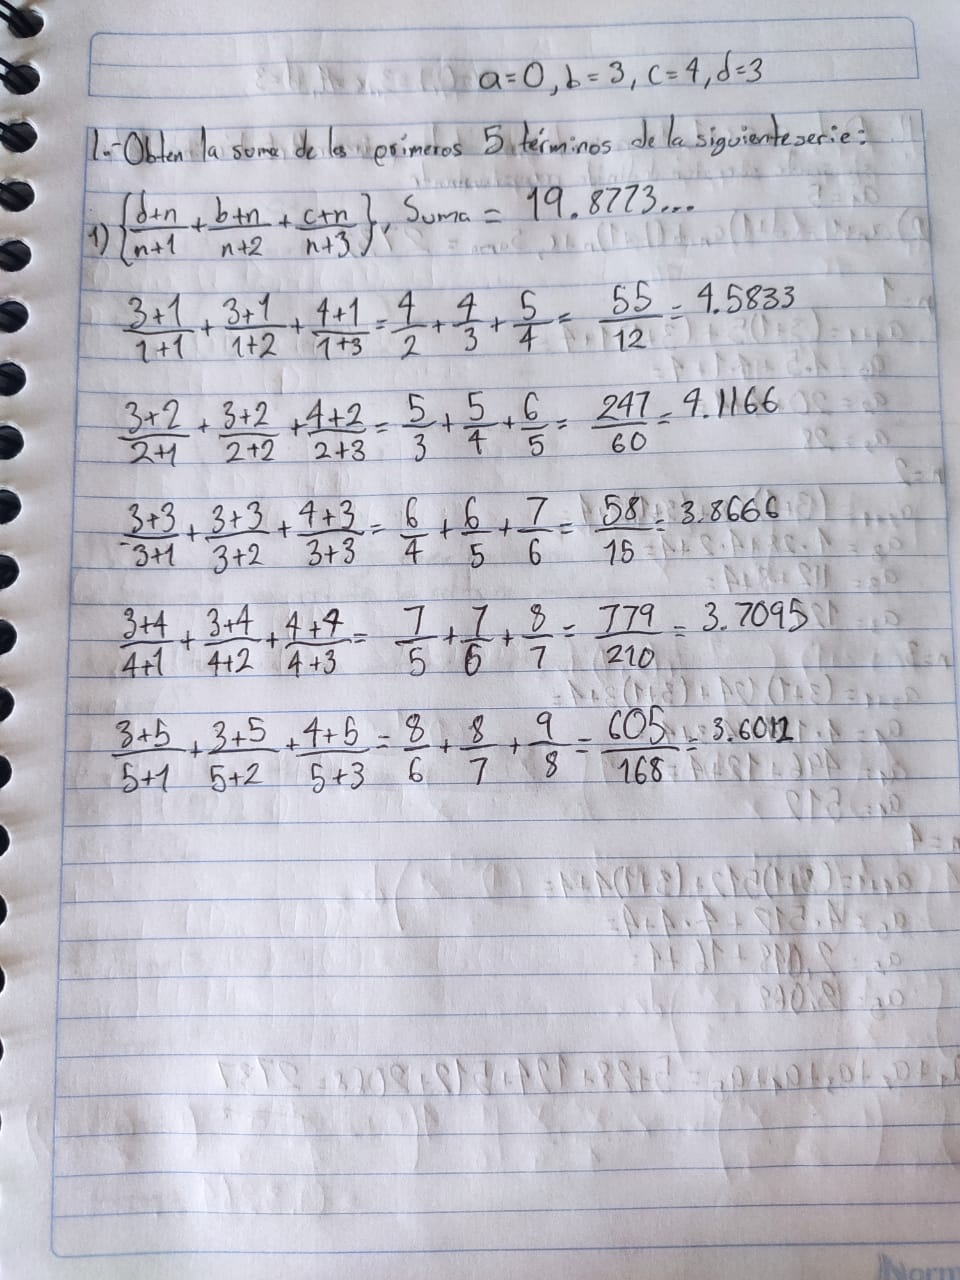 a=0, b=3, c=4, d=3
1.-Obten la suma de los primeros 5 términos de la siguiente serie:
1) {d+n/n+1 + b+n/n+2 + c+n/n+3}, Suma = 19.8773...
3+1/1+1 + 3+1/1+2 + 4+1/1+3 = 4/2 + 4/3 + 5/4 = 55/12 = 4.5833
3+2/2+1 + 3+2/2+2 + 4+2/2+3 = 5/3 + 5/4 + 6/5 = 247/60 = 4.1166
3+3/3+1 + 3+3/3+2 + 4+3/3+3 = 6/4 + 6/5 + 7/6 = 58/15 = 3.8666
3+4/4+1 + 3+4/4+2 + 4+4/4+3 = 7/5 + 7/6 + 8/7 = 779/210 = 3.7095
3+5/5+1 + 3+5/5+2 + 4+5/5+3 = 8/6 + 8/7 + 9/8 = 605/168 = 3.6012
Norm